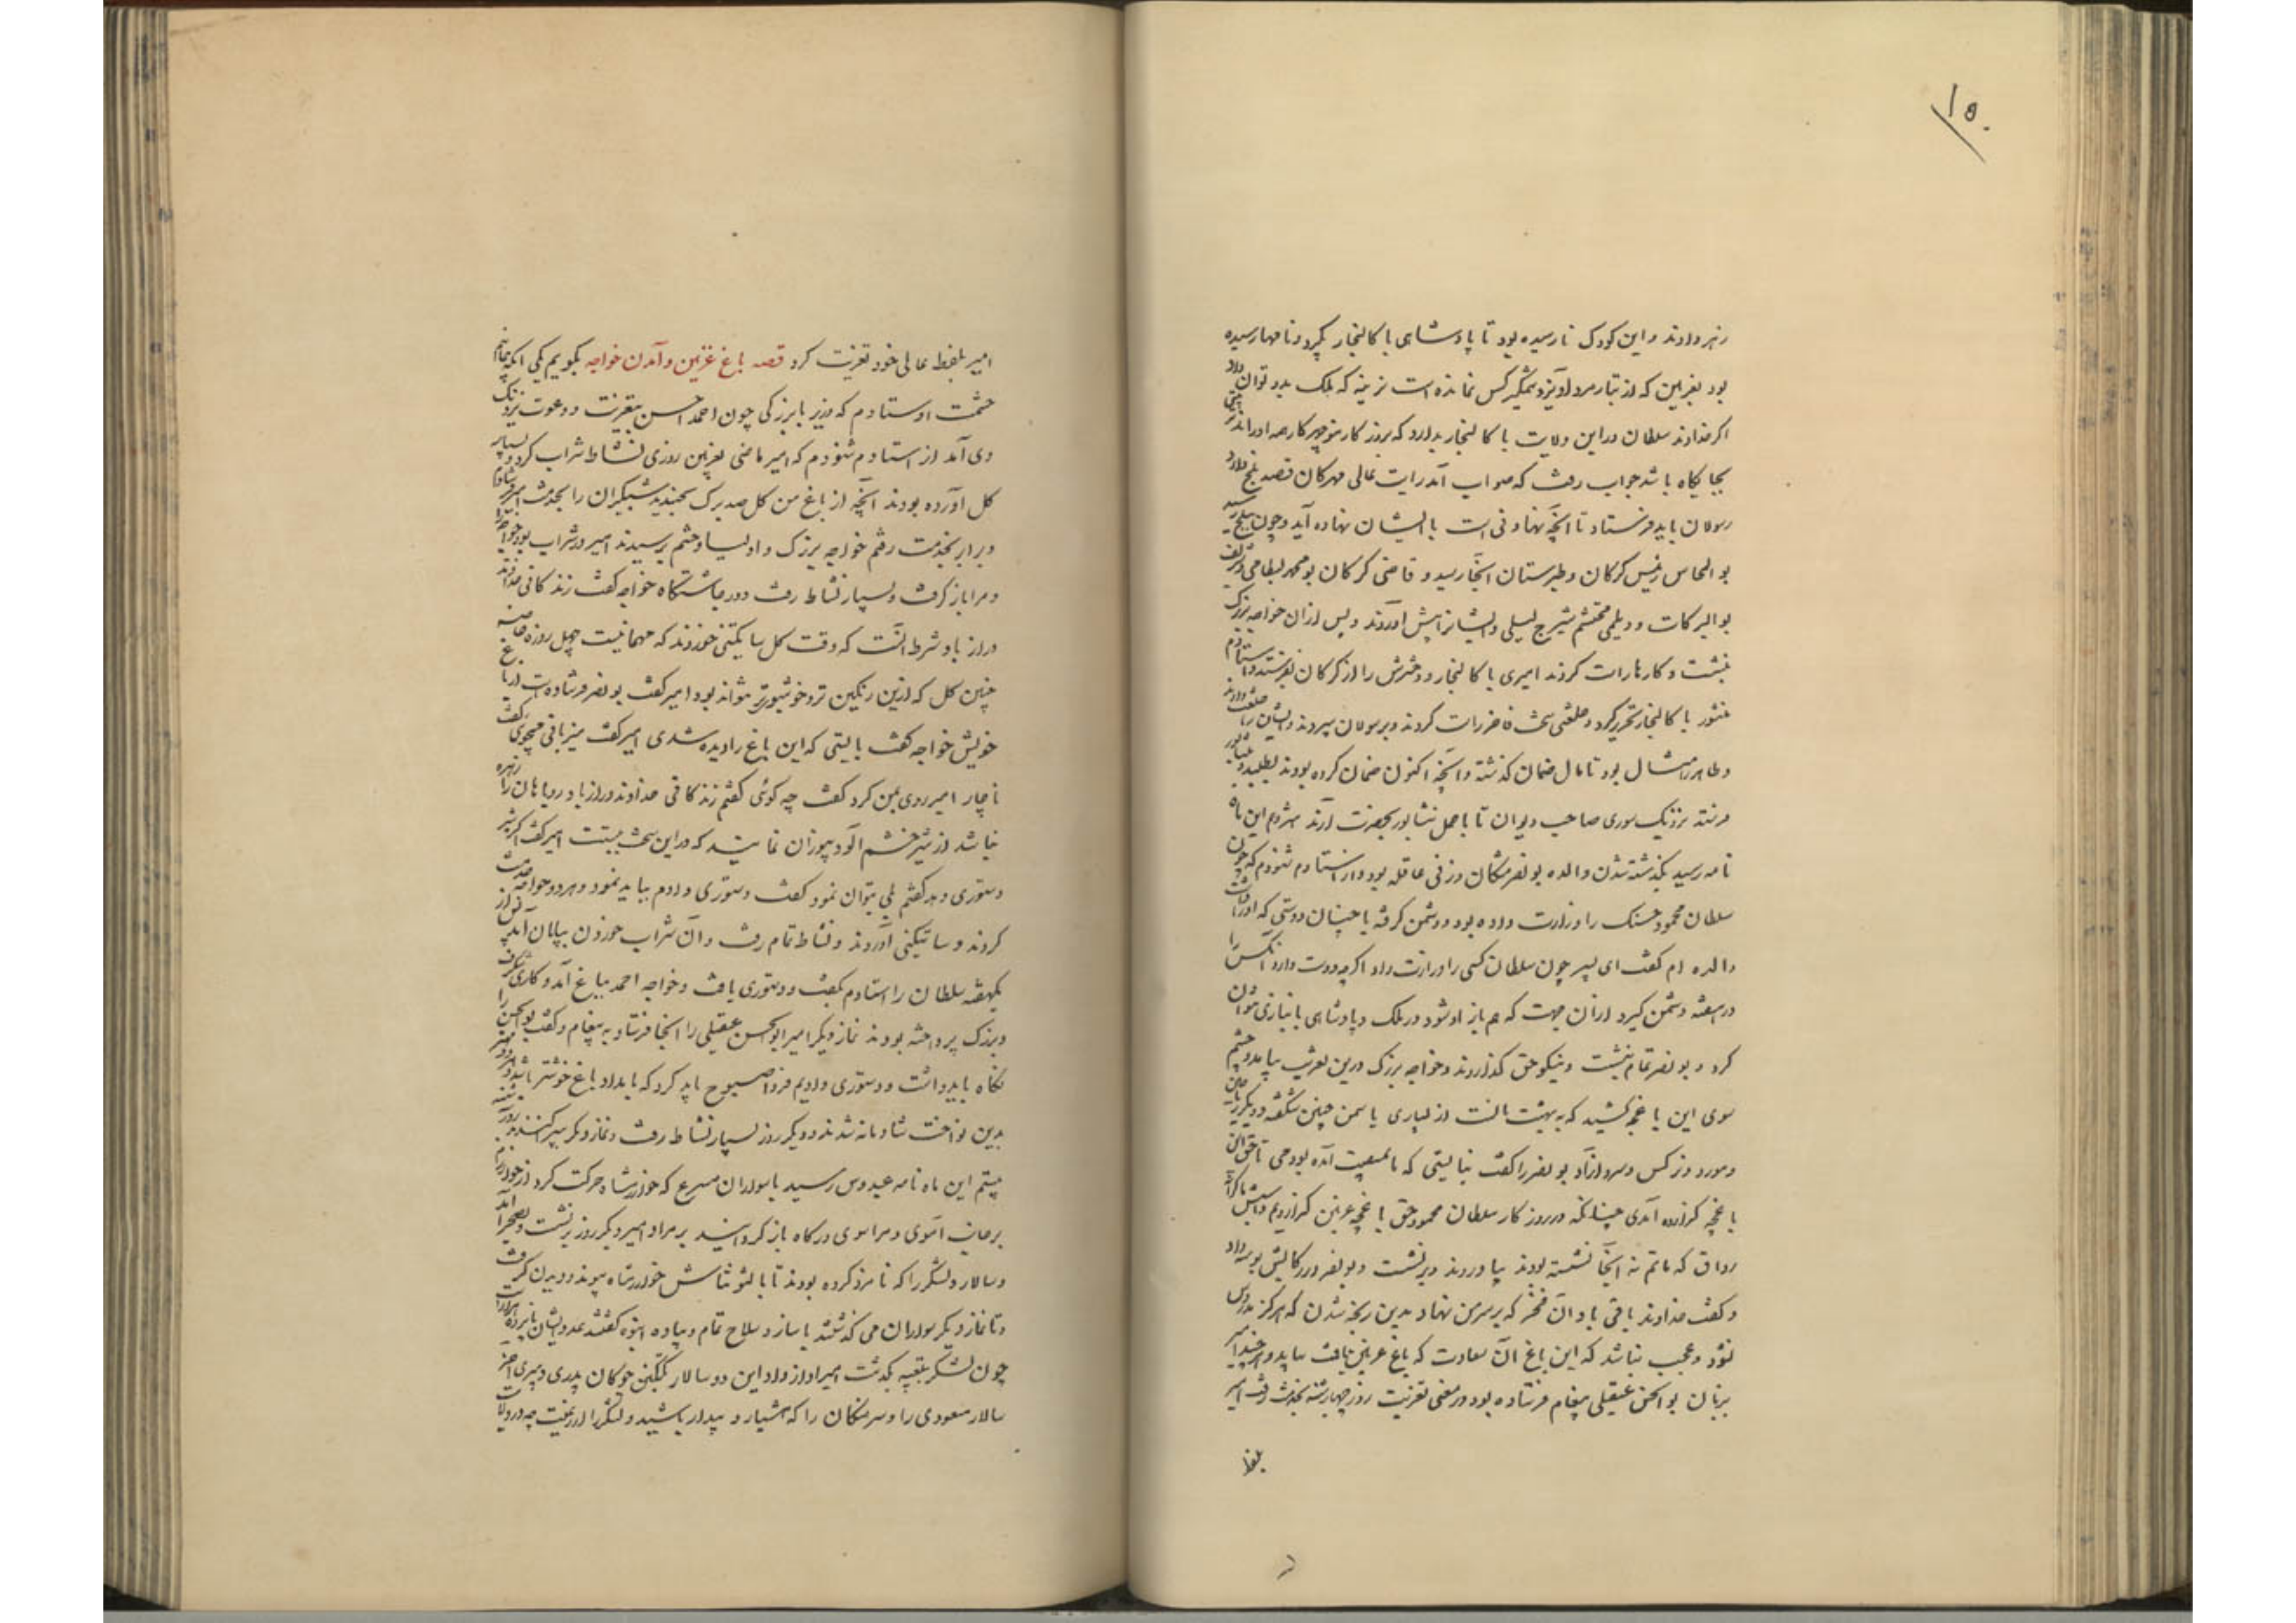 ۱۵۰
زهر دادند و این کودک نارسیده بود تا پادشاهی باکالنجار بگیرد و نامها رسیده
بود بغزنین که از تبار مردآویز و وشمگیر کس نمانده است نرینه که ملک بدو توان داد
اگر خداوند سلطان در این ولایت باکالنجار بدارد که بروزگار منوچهر کار همه او راند
بجایگاه باشد جواب رفت که صواب آمد رایت عالی مهرکان قصد بلخ دارد
رسولان باید فرستاد تا آنچه نهادنی است با ایشان نهاده آید و چون ببلخ رسید
بوالمحاسن رئیس گرگان و طبرستان آنجا رسید و قاضی گرگان بومحمد بسطامی و شریف
بوالبرکات و دیلمی محتشم شیرج لیلی و ایشانرا پیش آوردند و پس ازان خواجه بزرگ
بنشست و کارها راست کردند امیری باکالنجار و دخترش را از گرگان بفرستد و استادم
منشور باکالنجار تحریر کرد و خلعتی سخت فاخر راست کردند و برسولان سپردند و ایشان را خلعت دادند
و طاهر را مثال بود تا مال ضمان گذشته و آنچه اکنون ضمان کرده بودند بطلبد و بنیشابور
فرستد نزدیک سوری صاحب دیوان تا با حمل نشابور بحضرت آرند سیزدهم این ماه
نامه رسید بگذشته شدن والده بونصر مشکان و زنی عاقله بود و از استادم شنودم که چون
سلطان محمود حسنک را وزارت داده بود و دشمن گرفته با چنان دوستی که او را داشت
والده ام گفت ای پسر چون سلطان کسی را وزارت داد اگرچه دوست دارد آنکس را
در هفته دشمن گیرد ازان جهت که هم باز او شود در ملک و پادشاهی بانبازی نتوان
کرد و بونصر بماتم بنشست و نیکو حق گذاردند و خواجه بزرگ درین تعزیت بیامد و چشم
سوی این باغچه کشید که بهشت را مانست از بسیاری یاسمن چنین شکفته و دیگر ریاحین
و مورد و نرگس و سرو آزاد بونصر را گفت نبایستی که ما بمصیبت آمده بودمی تا حق این
باغچه گزارده آمدی چنانکه در روزگار سلطان محمود حق باغچه غزنین گزاردیم و اسپش بکرانه
رواق که ماتم نه آنجا نشسته بودند بیاوردند و برنشست و بونصر در رکابش بوسه داد
و گفت خداوند باقی باد آن فخر که بر سر من نهاد بدین رنجه شدن که هرگز مدروس
نشود و عجب نباشد که این باغ آن سعادت که باغ غزنین یافت بیابد و هرچند امیر
بزبان بوالحسن عقیلی پیغام فرستاده بود در معنی تعزیت روز چهارشنبه بخدمت رفت امیر
بلفظ
امیر بلفظ عالی خود تعزیت کرد قصه باغ غزنین و آمدن خواجه بگویم یکی آنکه بنمایم
حشمت اوستادم که وزیر با بزرگی چون احمد حسن بتعزیت و دعوت نزدیک
وی آمد از استادم شنودم که امیر ماضی بغزنین روزی نشاط شراب کرد و بسیار
گل آورده بودند آنچه از باغ من گل صد برگ بخندید شبگیران را بخدمت امیر فرستادم
و برابر بخدمت رفتم خواجه بزرگ و اولیا و حشم برسیدند امیر در شراب بود خواجه را
و مرا بازگرفت و بسیار نشاط رفت و در چاشتگاه خواجه گفت زندگانی خداوند
دراز باد شرط آنست که وقت گل ساتگینی خورند که مهمانیست چهل روزه خاصه
چنین گل که ازین رنگین تر و خوشبوی تر نتواند بود امیر گفت بونصر فرستاده است از باغ
خویش خواجه گفت بایستی که این باغ را دیده شدی امیر گفت میزبانی میجوی گفت
ناچار امیر روی بمن کرد گفت چه گوئی گفتم زندگانی خداوند دراز باد روباهان را زهره
نباشد از شیر خشم آلود که یوزان نمایند که در این سخت بیست امیر گفت اگر شیر
دستوری دهد گفتم بلی بتوان نمود گفت دستوری دادم بباید نمود و هر دو خدمت
کردند و ساتگینی آوردند و نشاط تمام رفت و آن شراب خوردن بپایان آمد پس از
یکهفته سلطان را استادم بگفت و دستوری یافت و خواجه احمد بباغ آمد و کاری شگرف
و بزرگ پرداخته بودند نماز دیگر امیر ابوالحسن عقیلی را آنجا فرستاد به پیغام و گفت بوالحسن را
نگاه باید داشت و دستوری دادیم فردا صبوح باید کرد که بامداد باغ خوشتر باشد
بدین نواخت شادمانه شدند و دیگر روز بسیار نشاط رفت و نماز دیگر بپراکندند
بیستم این ماه نامه عبدوس رسید با سواران مسرع که خوارزمشاه حرکت کرد از خوارزم
برجانب آموی و مرا سوی درگاه بازگردانیدند بر مراد امیر دیگر روز برنشست و بصحرا آمد
و سالار و لشکر را که نامزد کرده بودند تا با التونتاش خوارزمشاه پیوندد دیدن گرفت
و تا نماز دیگر سواران می گذشتند با ساز و سلاح تمام و پیاده انبوه گفتند عدد ایشان پانزده هزار است
چون لشکر بتعبیه بگذشت امیر آواز داد این دو سالار بگتگین چوگانی پدری و پیری آخر
سالار مسعودی را و سرهنگان را که هشیار و بیدار باشید و لشکر را از رعیت چه در ولایت